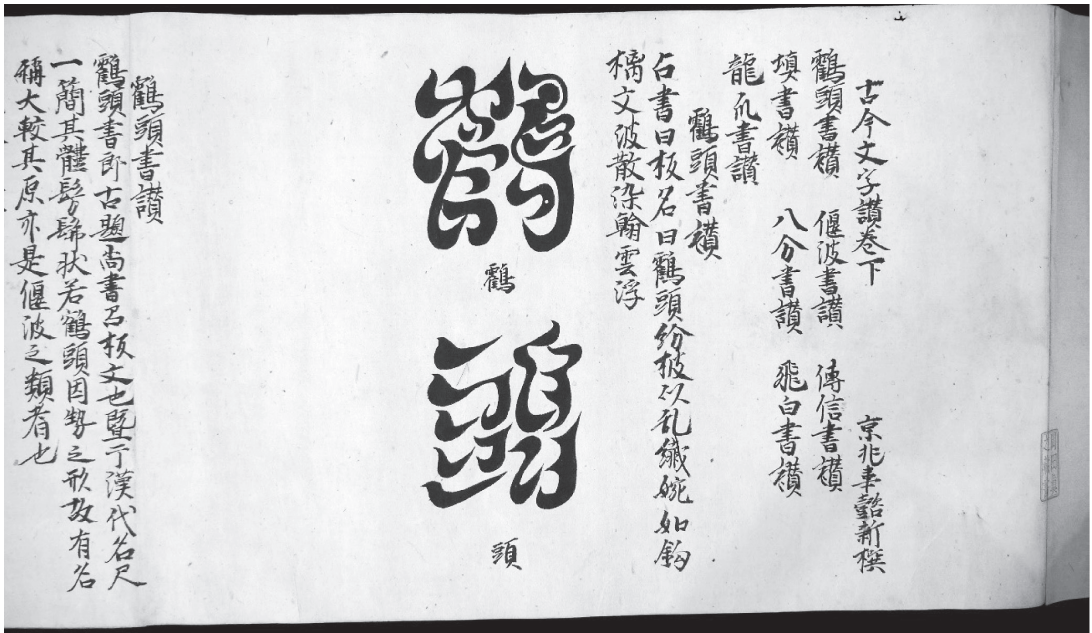 古今文字讃巻下　京兆韋 新撰
鶴頭書讃　偃波書讃　傳信書讃
填書讃　八分書讃　飛白書讃
龍爪書讃
鶴頭書讃
召書曰板名曰鶴頭紛披以乱纖婉如鈎
檇文波散染翰雲浮
鶴
頭
鶴頭書讃
鶴頭書即古題尚書召板文也暨于漢代名尺
一簡其體髣髴状若鶴頭因勢之形故有名
稱大較其原亦是偃波之類者也